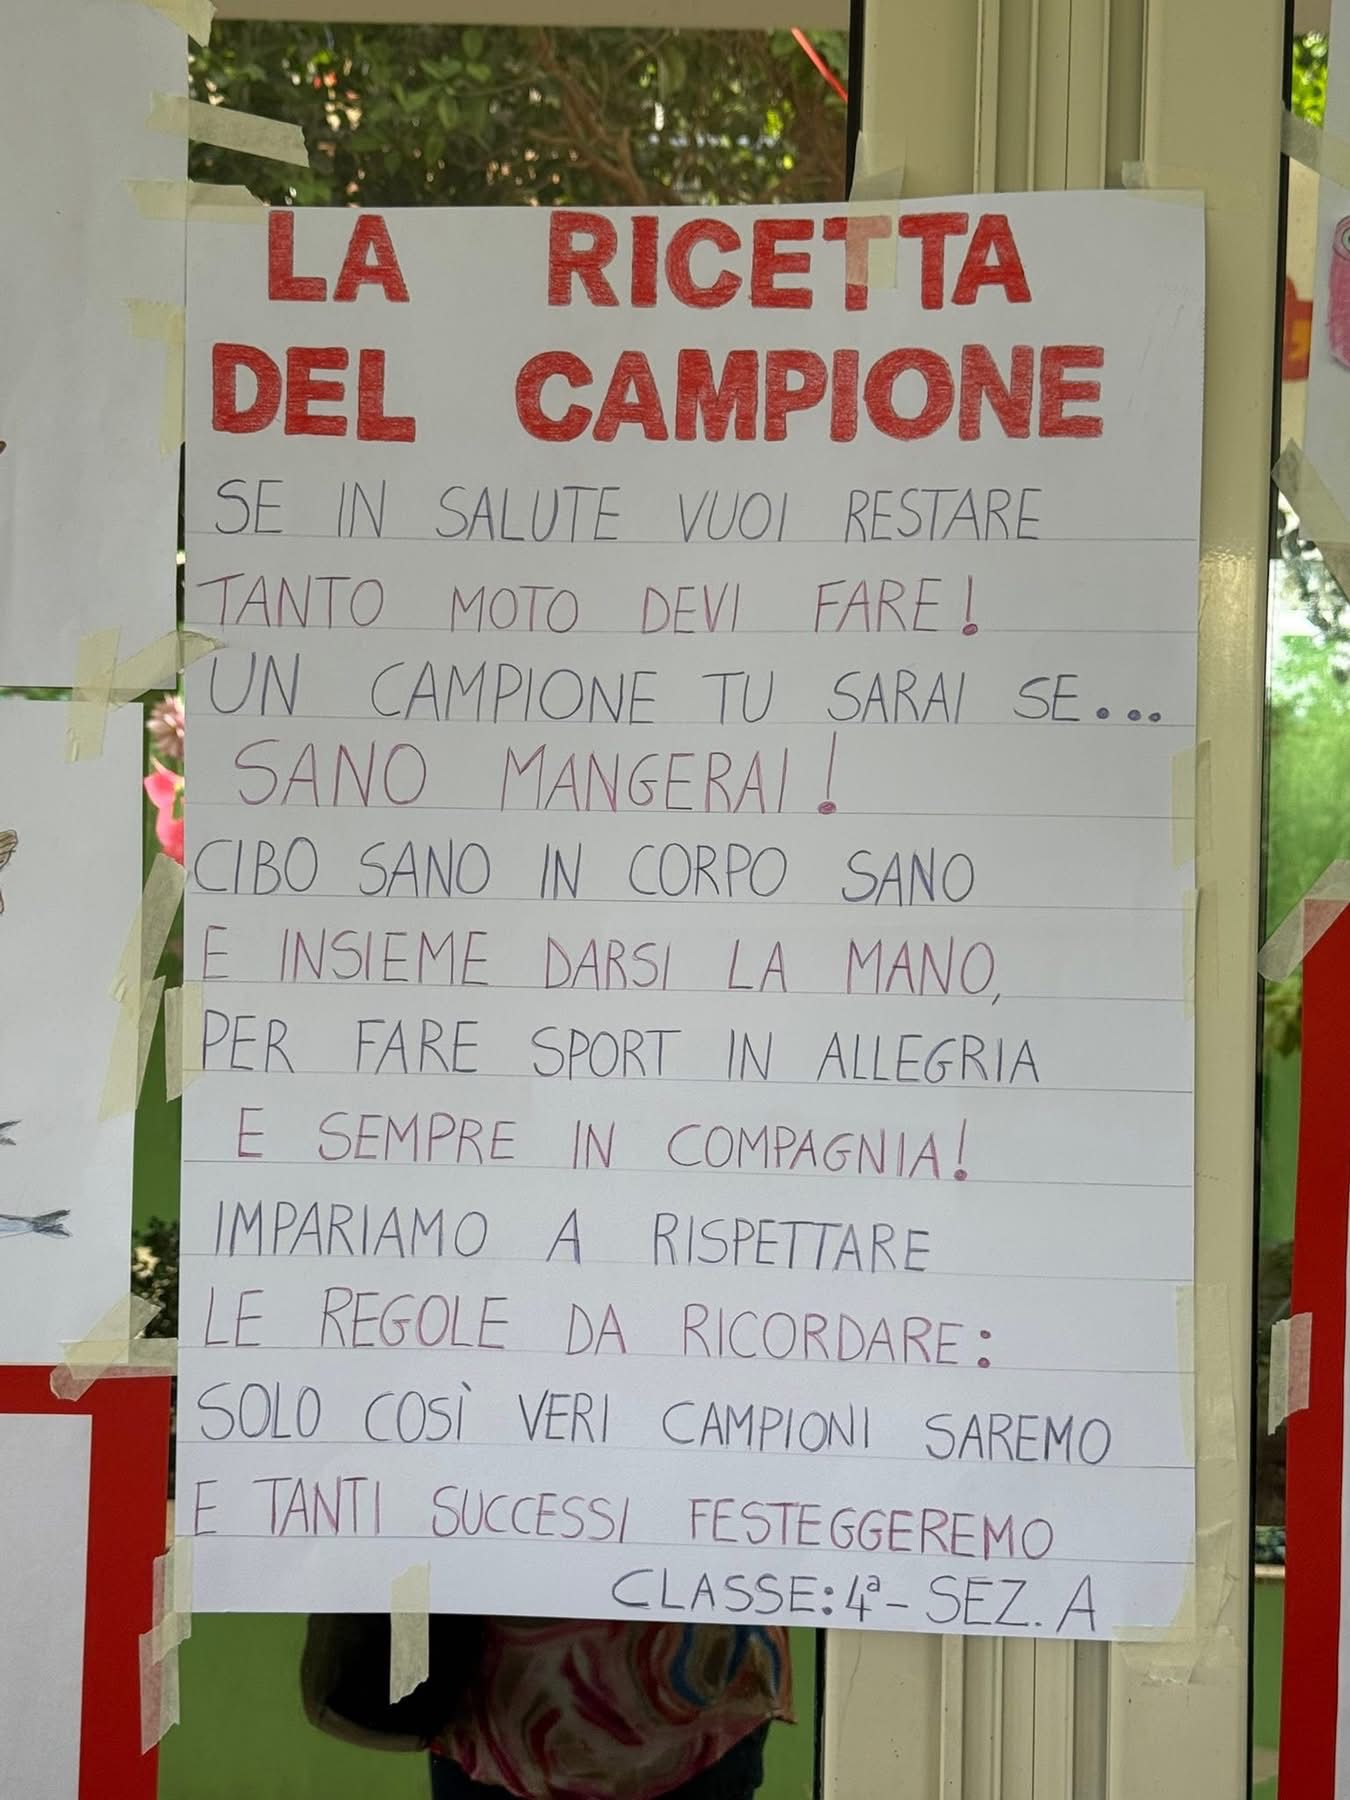 LA RICETTA
DEL CAMPIONE
SE IN SALUTE VUOI RESTARE
TANTO MOTO DEVI FARE!
UN CAMPIONE TU SARAI SE...
SANO MANGERAI!
CIBO SANO IN CORPO SANO
E INSIEME DARSI LA MANO,
PER FARE SPORT IN ALLEGRIA
E SEMPRE IN COMPAGNIA!
IMPARIAMO A RISPETTARE
LE REGOLE DA RICORDARE:
SOLO COSÌ VERI CAMPIONI SAREMO
E TANTI SUCCESSI FESTEGGEREMO
CLASSE: 4ª - SEZ. A